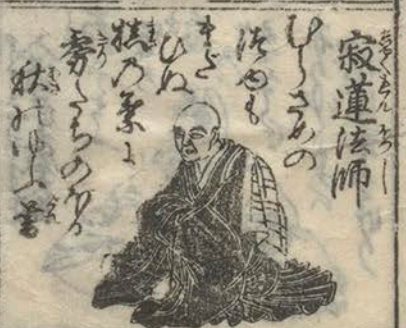 寂蓮法師
むらさめの
つゆも
まだ
ひぬ
槙乃葉に
霧たちのぼる
秋のゆふ暮